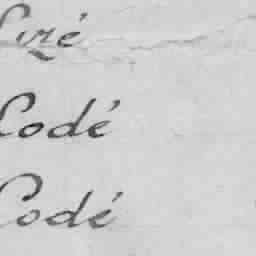 Liré
Codé
Codé